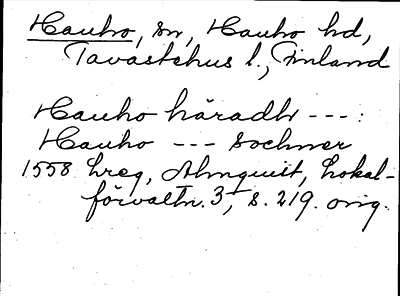 Hauho, sn, Hauho hd,
Tavastehus l., Finland
Hauho häradh ---:
Hauho --- sochner
1558 Lreg, Almquist, Lokal-
förvaltn. 3, s. 219. orig.